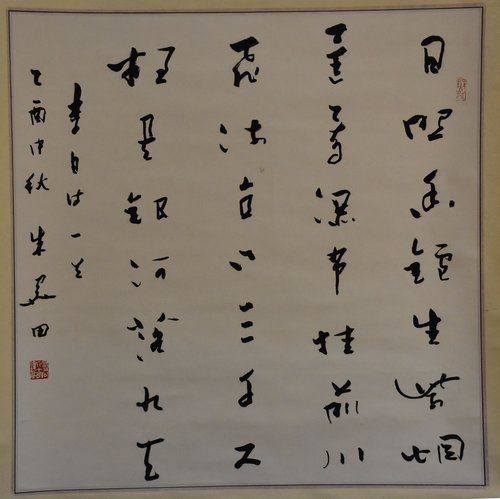 日照香鑪生紫烟
遥看瀑布挂前川
飛流直下三千尺
疑是银河落九天
李白诗一首
乙酉中秋 朱关田